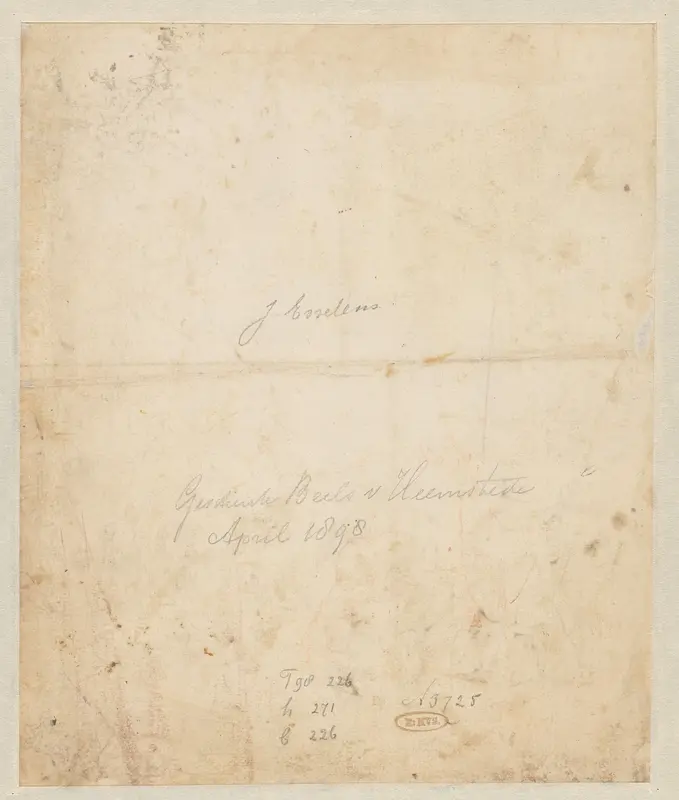 J Esselens
Geschenk Beels v Heemstede
April 1898
T 98 226
h 271
b 226
N 3725